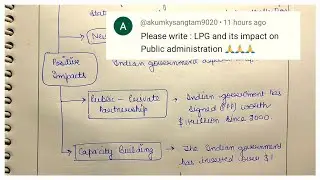 @akumkysangtam9020 • 11 hours ago
Please write : LPG and its impact on
Public administration 🙏🙏🙏
Indian government
Positive
Impacts
Public - Private
Partnership
→ Indian government has
signed PPP worth
since 2000.
Capacity Building
→ The Indian government
has invested over $1